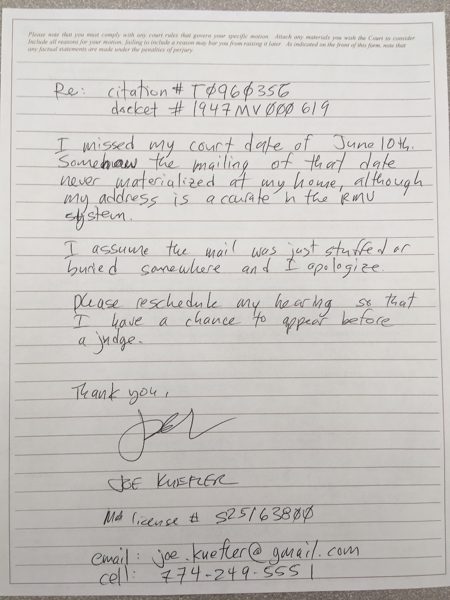 Please note that you must comply with any court rules that govern your specific motion. Attach any materials you wish the Court to consider
Include all reasons for your motion, failing to include a reason may bar you from raising it later. As indicated on the front of this form, note that
any factual statements are made under the penalties of perjury.
Re: citation # TØ960356
docket # 1947MVØØØ619
I missed my court date of June 10th.
Somehow the mailing of that date
never materialized at my home, although
my address is accurate in the RMV
system.
I assume the mail was just stuffed or
buried somewhere and I apologize.
Please reschedule my hearing so that
I have a chance to appear before
a judge.
Thank you,
JOE KUEFLER
MA license # S251638ØØ
email: joe.kuefler@gmail.com
cell: 774-249-5551